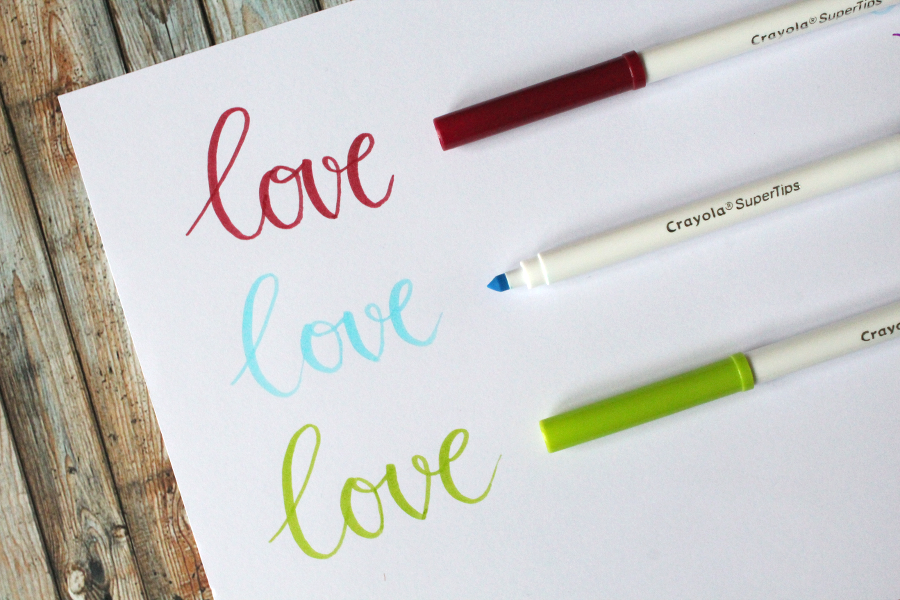 love
Crayola® SuperTips
love
Crayola® SuperTips
love
Crayo